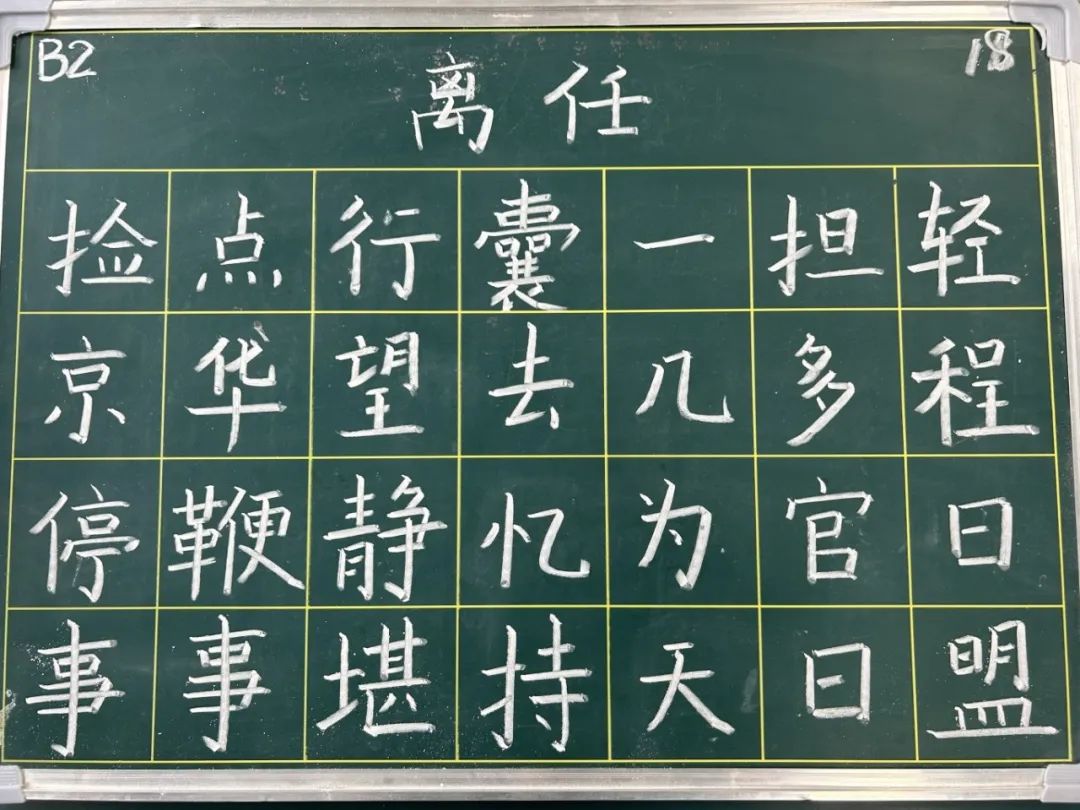 B2
18
离任
捡点行囊一担轻
京华望去几多程
停鞭静忆为官日
事事堪持天日盟